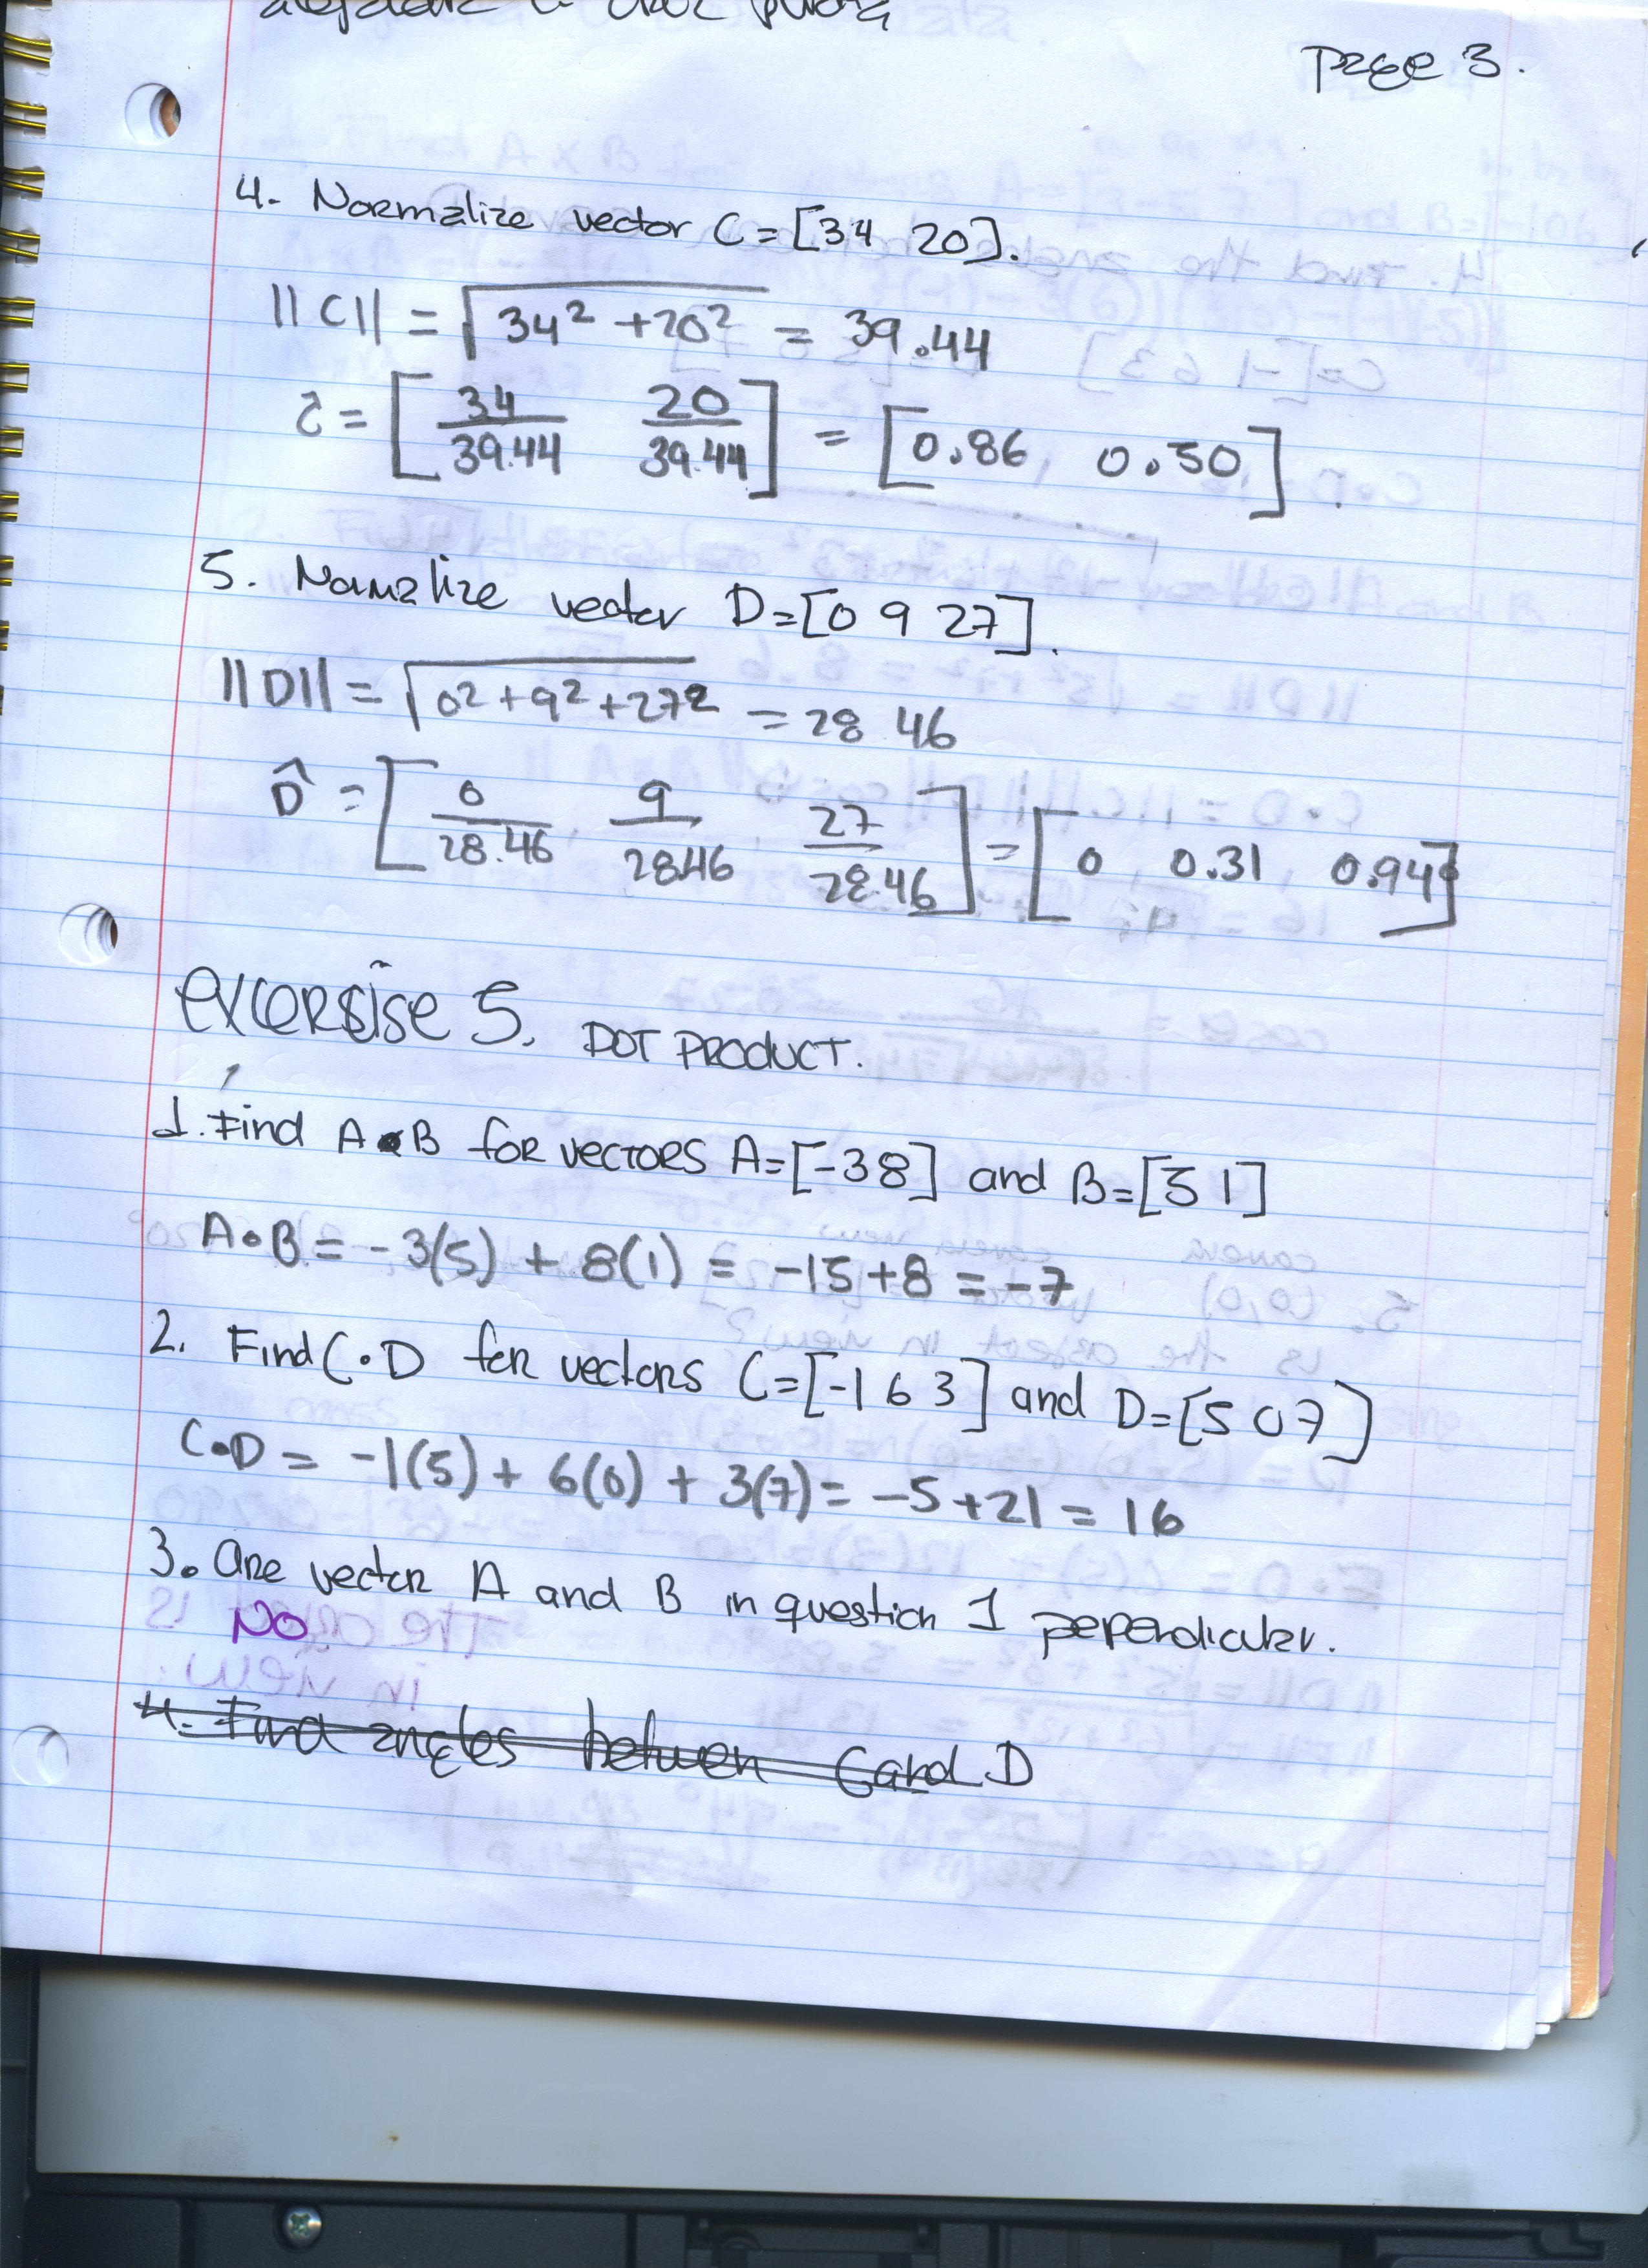 Page 3.
4. Normalize vector C = [34 20].
||C|| = √34² + 20² = 39.44
Ĉ = [34/39.44 20/39.44] = [0.86, 0.50]
5. Normalize vector D = [0 9 27].
||D|| = √0² + 9² + 27² = 28 46
D̂ = [0/28.46 9/28.46 27/28.46] = [0 0.31 0.94]
excersise 5. DOT PRODUCT.
1. Find A•B for vectors A = [-3 8] and B = [5 1]
A•B = -3(5) + 8(1) = -15 + 8 = -7
2. Find C•D for vectors C = [-1 6 3] and D = [5 0 7]
C•D = -1(5) + 6(0) + 3(7) = -5 + 21 = 16
3. Are vector A and B in question 1 perpendicular.
NO
4. Find angles between C and D